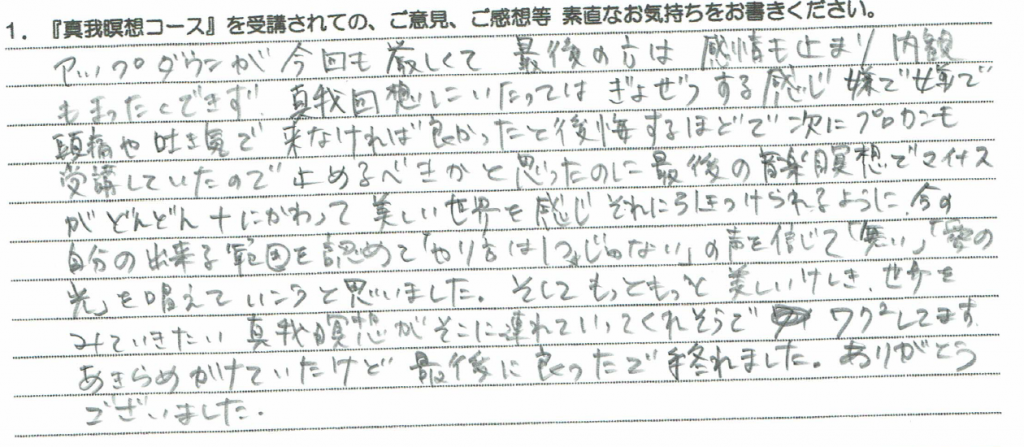 1. 『真我瞑想コース』を受講されての、ご意見、ご感想等 素直なお気持ちをお書きください。
アップダウンが今回も厳しくて 最後の方は 感情も止まり 内観
もまったくできず 真我回想にいたっては ぎょぜつする感じ 嫌で嫌で
頭痛や吐き気で 来なければ良かったと後悔するほどで 次にプロカンも
受講していたので 止めるべきかと思ったのに 最後の音楽瞑想でマイナス
がどんどん十にかわって 美しい世界を感じ それに引きつけられるように、今の
自分の出来る範囲を認めて「やり方は1つじゃない」の声を信じて「無い」「愛の
光」を唱えていこうと思いました。そしてもっともっと 美しいけしき、世界を
みていきたい 真我瞑想がそこに連れていってくれそうで ワク2してます
あきらめかけていたけど 最後に良かったで終れました。ありがとう
ございました.